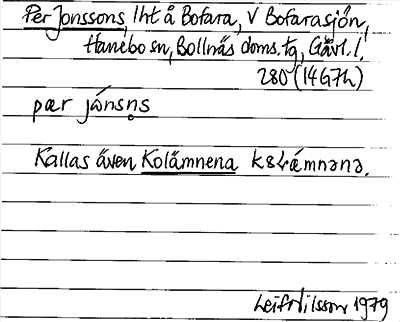 Per Jonssons, lht å Bofara, V Bofarasjön,
Hanebo sn, Bollnäs doms.tg, Gävl. l.
280 (14G7h)
pær jånsn̥s
Kallas även Kolämnena
Leif Nilsson 1979